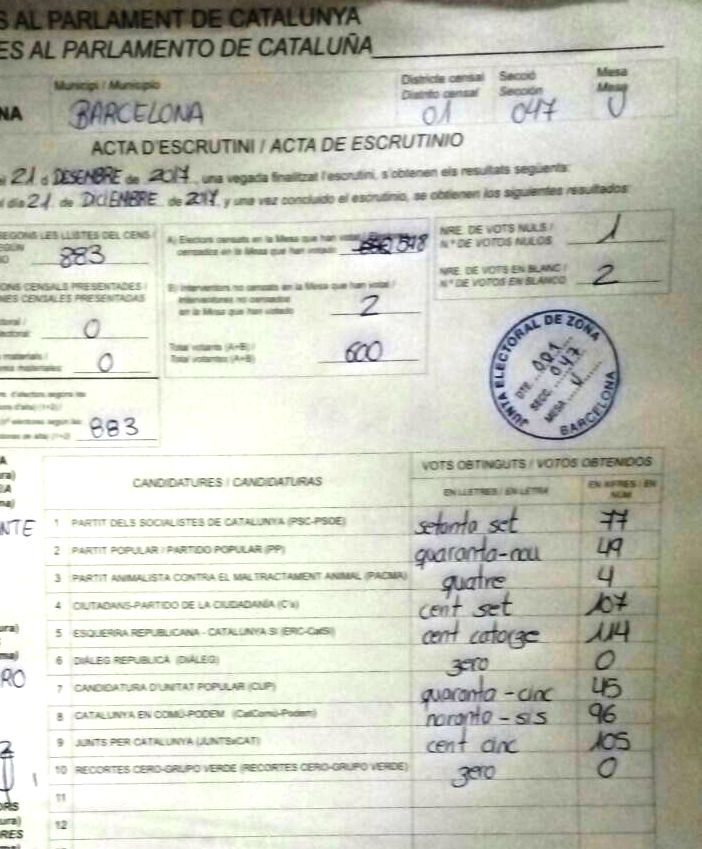 S AL PARLAMENT DE CATALUNYA
ES AL PARLAMENTO DE CATALUÑA
Municipi / Municipio
Districte censal
Distrito censal
Secció
Sección
Mesa
Mesa
NA
BARCELONA
01
047
U
ACTA D'ESCRUTINI / ACTA DE ESCRUTINIO
21 d DESEMBRE de 2017, una vegada finalitzat l'escrutini, s'obtenen els resultats següents:
l día 21 de DICIEMBRE de 2017, y una vez concluido el escrutinio, se obtienen los siguientes resultados:
SEGONS LES LLISTES DEL CENS /
883
A) Electors censats en la Mesa que han votat /
censados en la Mesa que han votado
598
NRE. DE VOTS NULS /
N.º DE VOTOS NULOS
1
ONS CENSALS PRESENTADES /
NES CENSALES PRESENTADAS
B) Interventors no censats en la Mesa que han votat /
Interventores no censados
en la Mesa que han votado
2
NRE. DE VOTS EN BLANC /
N.º DE VOTOS EN BLANCO
2
toral /
lectoral:
0
materials /
materiales:
0
Total votants (A+B) /
Total votantes (A+B)
600
JUNTA ELECTORAL DE ZONA
DTE. 001
SECC. 047
MESA U
BARCELONA
883
CANDIDATURES / CANDIDATURAS
VOTS OBTINGUTS / VOTOS OBTENIDOS
EN LLETRES / EN LETRA
EN XIFRES / EN NÚM.
1 PARTIT DELS SOCIALISTES DE CATALUNYA (PSC-PSOE) setanta set 77
2 PARTIT POPULAR / PARTIDO POPULAR (PP) quaranta-nou 49
3 PARTIT ANIMALISTA CONTRA EL MALTRACTAMENT ANIMAL (PACMA) quatre 4
4 CIUTADANS-PARTIDO DE LA CIUDADANÍA (C's) cent set 107
5 ESQUERRA REPUBLICANA - CATALUNYA SÍ (ERC-CatSí) cent catorze 114
6 DIÀLEG REPUBLICÀ (DIÀLEG) zero 0
7 CANDIDATURA D'UNITAT POPULAR (CUP) quaranta-cinc 45
8 CATALUNYA EN COMÚ-PODEM (CatComú-Podem) noranta-sis 96
9 JUNTS PER CATALUNYA (JUNTSxCAT) cent cinc 105
10 RECORTES CERO-GRUPO VERDE (RECORTES CERO-GRUPO VERDE) zero 0
11
12